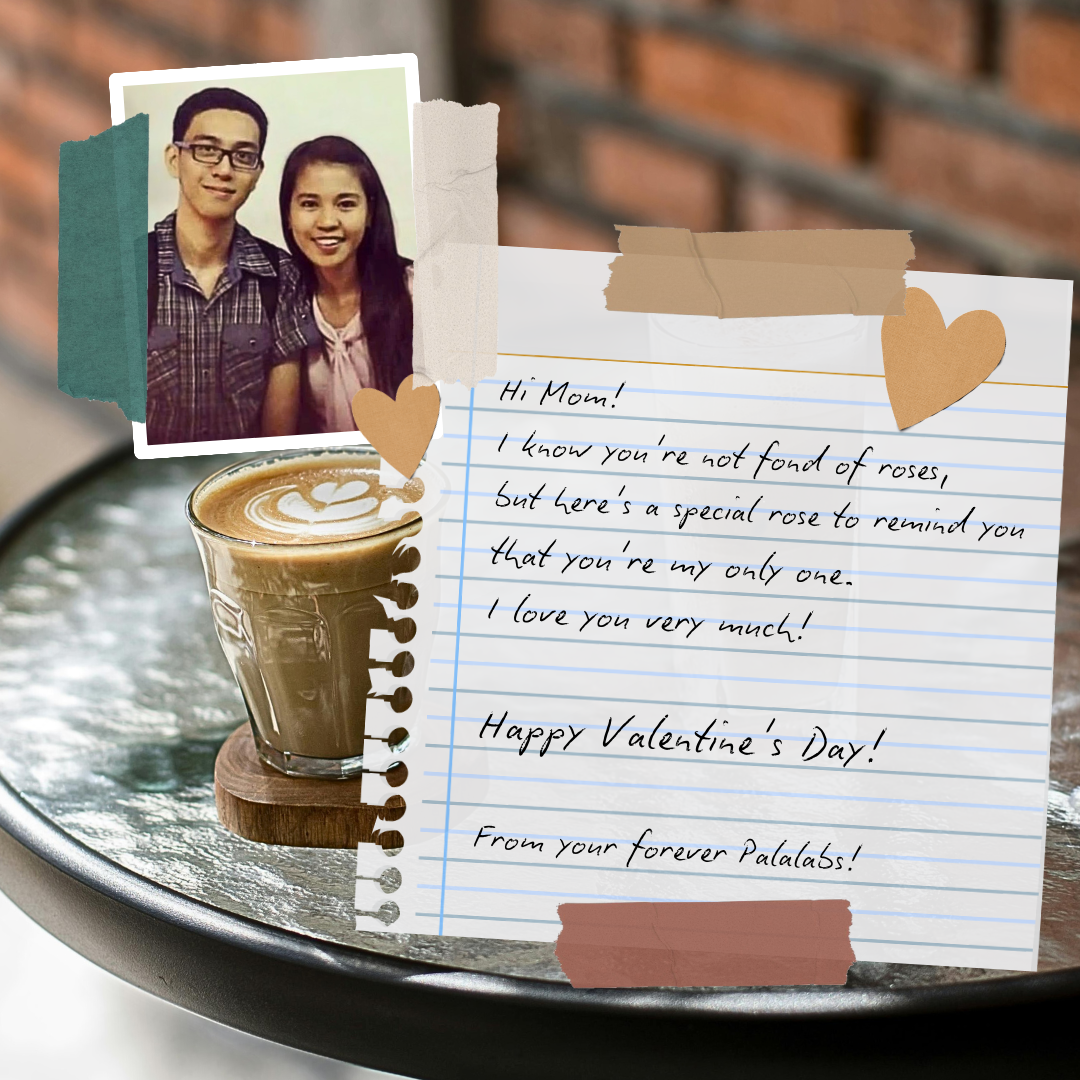 Hi Mom!
I know you're not fond of roses,
but here's a special rose to remind you
that you're my only one.
I love you very much!
Happy Valentine's Day!
From your forever Palalabs!